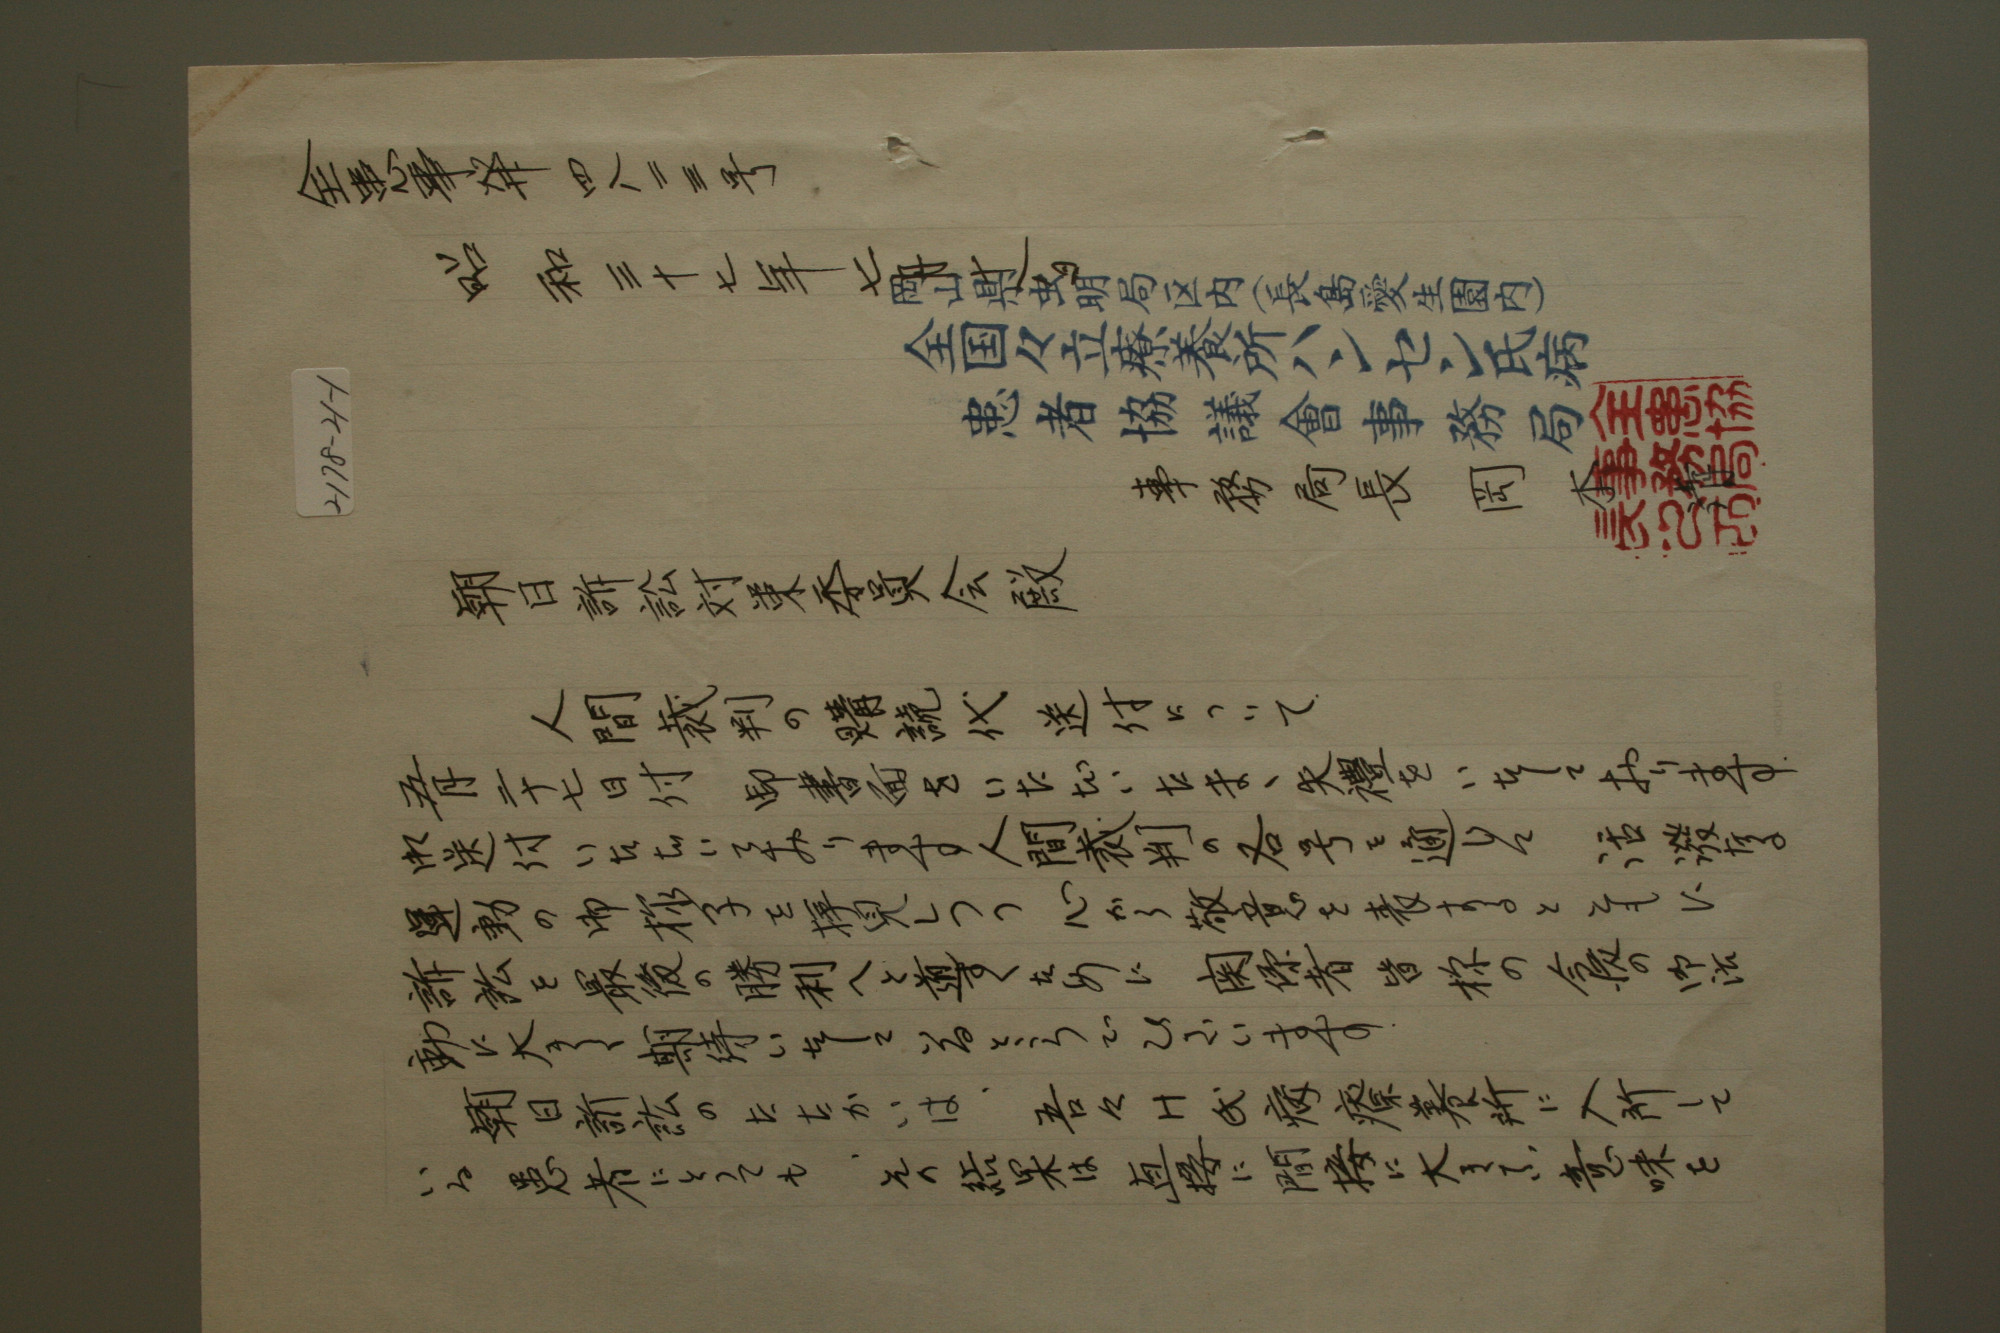 全患事発四八二三号
昭和三十七年七月
岡山県虫明局区内(長島愛生園内)
全国々立療養所ハンセン氏病
患者協議會事務局
事務局長 岡本
全患協事務局長之印
2178-4-1
朝日訴訟対策委員会殿
人間裁判の購読代送付について
五月二十七日付 御書面をいただいたまゝ失禮をいたしております.
御送付いただいております人間裁判の各号を通じて 活溌なる
運動の御様子を拝見しつつ 心から敬意を表するとともに
訴訟を最後の勝利へと導くために 関係者皆様の今後の御活
動に大きく期待いたしているところでございます.
朝日訴訟のたたかいは、吾々H氏病療養所に入所して
いる患者にとっても、その結果は直接に間接に大きい意味を